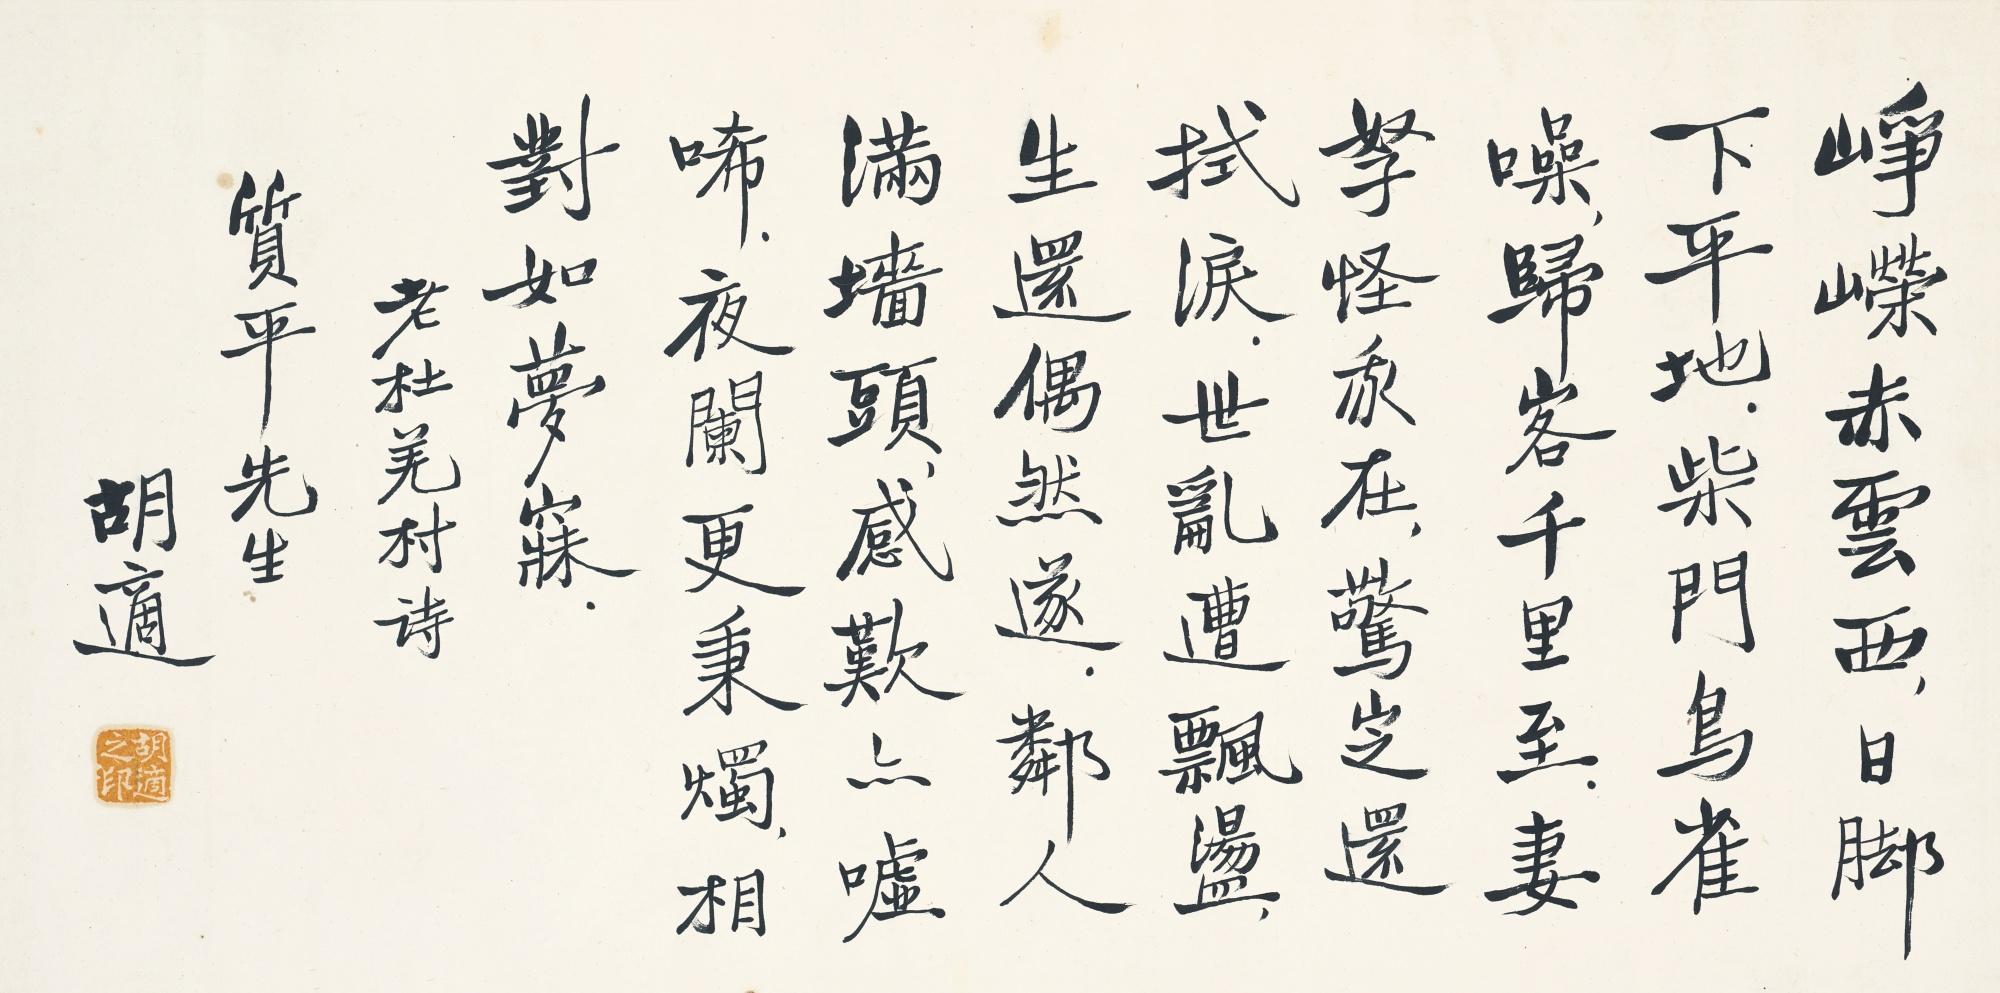 峥嶸赤雲西，日脚
下平地．柴門鳥雀
噪，歸客千里至．妻
孥怪我在，驚定還
拭淚．世亂遭飄盪，
生還偶然遂．鄰人
滿墻頭，感歎亦噓
唏．夜闌更秉燭，相
對如夢寐．
老杜羌村诗
質平先生
胡適
胡適之印